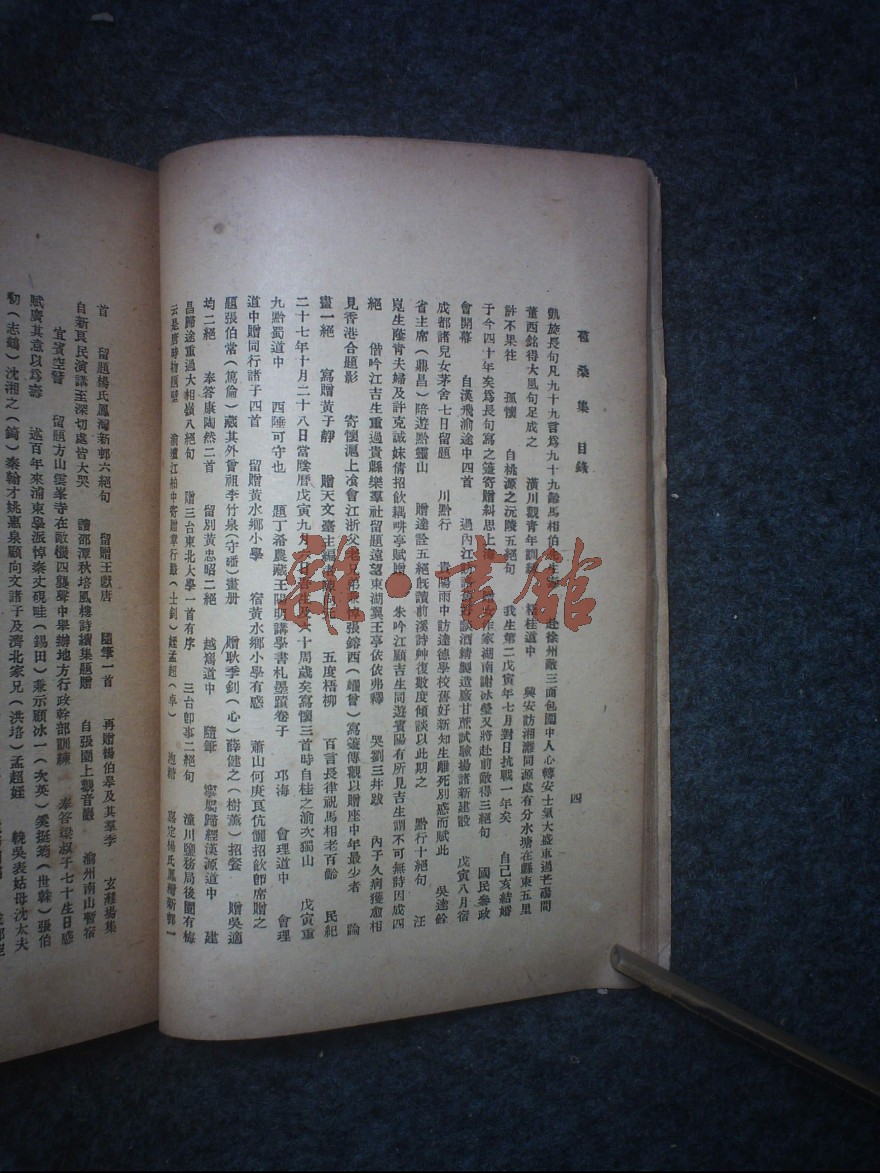 苞桑集 目錄
四
凱旋長句凡九十九言爲九十九齡馬相伯先生壽 赴徐州敵三面包圍中人心轉安士氣大盛重過芒碭間
董西銘得大風句足成之 潢川觀青年訓練 桂道中 興安訪湘灕同源處有分水塘在縣東五里
許不果往 孤懷 自桃源之沅陵五絕句 我生第二戊寅年七月對日抗戰一年矣 自己亥結婚
于今四十年矣爲長句寫之箋寄贈糾思上海 作家湖南謝冰瑩又將赴前敵得三絕句 國民參政
會開幕 自漢飛渝途中四首 過內江 酒精製造廠甘蔗試驗場諸新建設 戊寅八月宿
成都諸兒女茅舍七日留題 川黔行 貴陽雨中訪達德學校舊好新知生離死別感而賦此 吳達銓
省主席(鼎昌)陪遊黔靈山 贈達詮五絕旣讀前溪詩艸復數度傾談以此期之 黔行十絕句 汪
崑生蔭宵夫婦及許克誠妹倩招飲耦畊亭賦贈 朱吟江顧吉生同遊賓陽有所見吉生謂不可無詩因成四
絕 偕吟江吉生重過貴縣樂羣社留題遠望東湖翼王亭依依弗釋 哭劉三井跋 內子久病獲愈相
見香港合題影 寄懷滬上飡會江浙父老兄弟 張鎔西(耀曾)寫箋傳觀以贈座中年最少者 論
畫一絕 寫贈黃子靜 贈天文臺主編者陳 五度梧柳 百言長律祝馬相老百齡 民紀
二十七年十月二十八日當陰曆戊寅九月 六十周歲矣寫懷三首時自桂之渝次獨山 戊寅重
九黔蜀道中 西陲可守也 題丁希農藏王陽明講學書札墨蹟卷子 邛海 會理道中 會理
道中贈同行諸子四首 留贈黃水鄉小學 宿黃水鄉小學有感 蕭山何庚良伉儷招飲卽席贈之
題張伯常(篤倫)藏其外曾祖李竹泉(守璠)畫册 贈耿季釗(心)薛健之(樹薰)招餐 贈吳適
均二絕 奉答康陶然二首 留別黃忠昭二絕 越嶲道中 隨筆 寧屬歸經漢源道中 建
昌歸途重過大相嶺八絕句 贈三台東北大學一首有序 三台卽事二絕句 潼川鹽務局後圃有梅
云是唐時物題壁 渝檀江柏中寄贈章行嚴(士釗)姪孟超(卓) 嘉定楊氏鳳灣新邨一
首 留題楊氏鳳灣新邨六絕句 留贈王獻唐 隨筆一首 再贈楊伯皋及其羣季 玄灘場集
自新良民演講至深切處皆大哭 讀邵潭秋培風樓詩續集題贈 自張園上觀音巖 渝州南山暫宿
宜賓空警 留題方山雲峯寺在敵機四襲聲中舉辦地方行政幹部訓練 奉答梁叔子七十生日感
賦廣其意以爲壽 述百年來浦東學派悼秦丈硯畦(錫田)兼示顧冰一(次英)奚挺筠(世榦)張伯
初(志鶴)沈湘之(錡)秦翰才姚惠泉顧向文諸子及濟北家兄(洪培)孟超姪 輓吳表姑母沈太夫